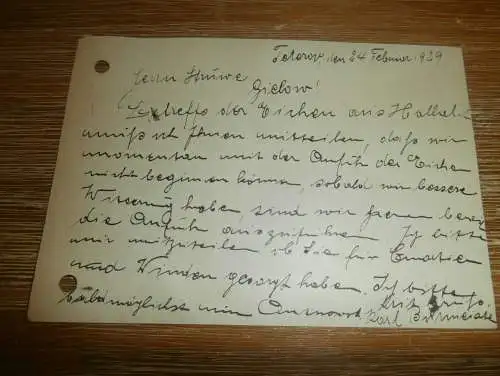 Teterow, den 24 Februar 1939
Herrn Stüwe
Gielow!
Betreffs der Eichen aus
muß ich Ihnen mitteilen, daß wir
momentan mit der Anfuhr der Eichen
nicht beginnen können, sobald wir bessere
Witterung haben, sind wir gerne bereit
die Anfuhr auszuführen. Ich bitte
mir mitzuteilen ob Sie für
und Winden gesorgt haben. Ich bitte
baldmöglichst um Antwort
Karl